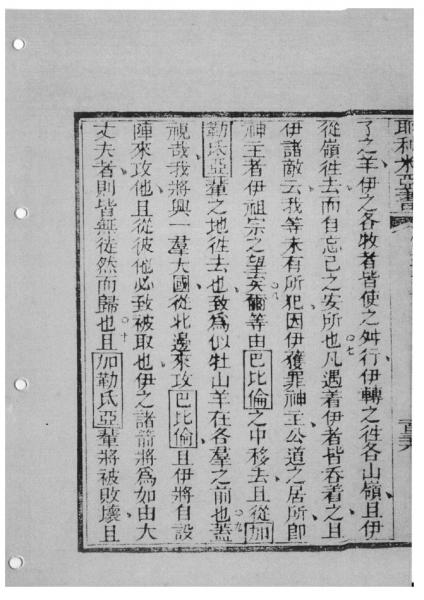 耶利米亞書
了之羊伊之各牧者皆使之舛行伊轉之徃各山嶺且伊
從嶺徃去而自忘己之安所也。七凡遇着伊者皆吞着之且
伊諸敵云我等未有所犯因伊獲罪神主公道之居所即
神主者伊祖宗之望矣。八爾等由巴比倫之中移去且從加
勒氏亞輩之地徃去也致爲似牡山羊在各羣之前也。九蓋
視哉我將興一羣大國從北邊來攻巴比倫且伊將自設
陣來攻他且從彼他必致被取也伊之諸箭將爲如由大
丈夫者則皆無徒然而歸也。十且加勒氏亞輩將被敗壞且